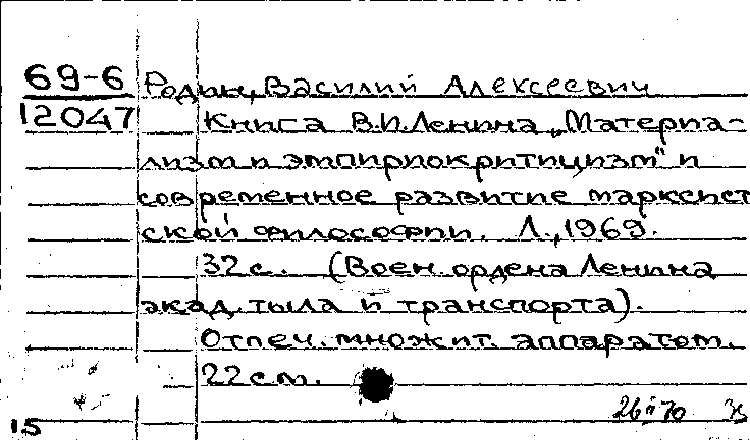 69-6 Родин, Василий Алексеевич
12047 Книга В.И.Ленина „Материа-
лизм и эмпириокритицизм" и
современное развитие марксист
ской философии. Л., 1969.
32 с. (Воен. ордена Ленина
акад. тыла и транспорта).
Отпеч. множит. аппаратом.
22 см.
26 II 70
15